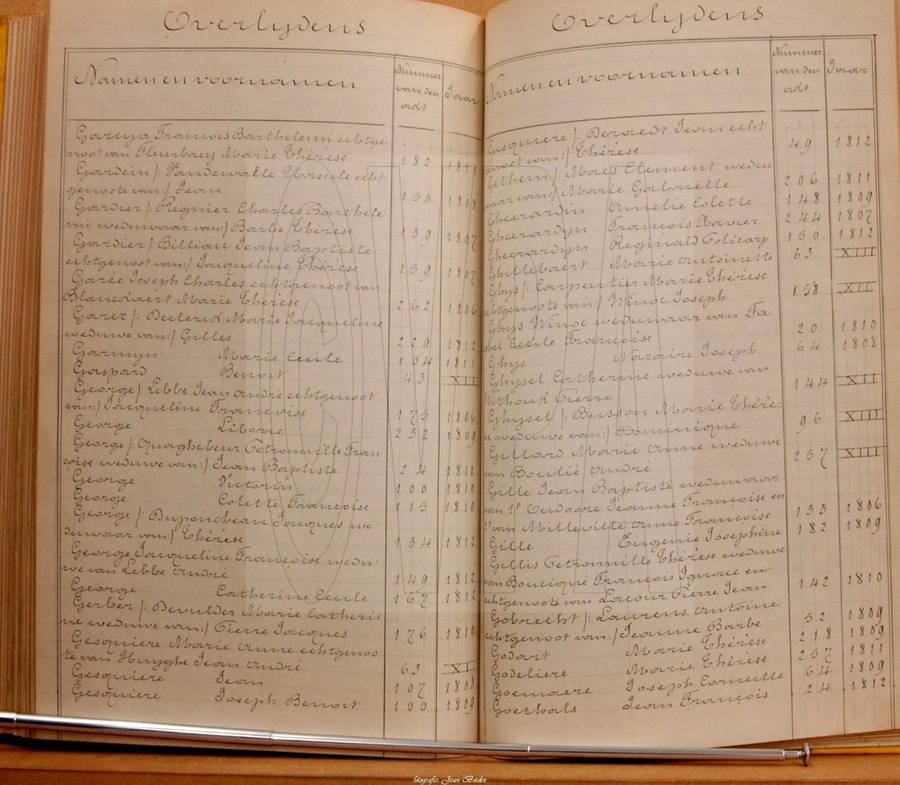 Overlydens
Namen en voornamen
Nummer van den acht
Jaar
Gareya François Barthelemi echtge
noot van Fleurbaey Marie Thérèse 182 1811
Gardein /: Vandewalle Ursule echt
genoote van :/ Jean 150 1808
Gardier /: Regnier Charles Barthele
mi weduwaar van :/ Barbe Thérèse 139 1807
Gardier /: Billiau Jean Baptiste
echtgenoot van :/ Jacqueline Thérèse 159 1807
Garée Joseph Charles echtgenoot van
Blanckaert Marie Thérèse 262 1806
Garez /: Declerck Marie Jacqueline
weduwe van :/ Gilles 229 1812
Garmyn Marie Cecile 104 1811
Gaspard Benoit 43 XII
George /: Lebbe Jean André echtgenoot
van :/ Jacqueline Françoise 175 1806
George Liborie 232 1809
George /: Quaghebeur Petronille Fran
çoise weduwe van :/ Jean Baptiste 24 1810
George Victorin 100 1810
George Colette Françoise 115 1810
George /: Duponcheau Jacques we
duwaar van :/ Thérèse 134 1812
George Jacqueline Françoise wedu
we van Lebbe André 149 1812
George Catherine Cecile 167 1812
Gerber /: Dewulder Marie Catheri
ne weduwe van :/ Pierre Jacques 176 1810
Gesquiere Marie Anne echtgenoo
te van Huyghe Jean André 63 XI
Gesquiere Jean 107 1808
Gesquiere Joseph Benoit 100 1809
Overlydens
Namen en voornamen
Nummer van den acht
Jaar
Gesquiere /: Deraedt Jean echt
genoot van :/ Thérèse 49 1812
Gethem /: Maes Clement wedu
waar van :/ Marie Gabrielle 206 1811
Gheerardin Amelie Colette 148 1809
Gheerardyn François Xavier 244 1807
Gheerardyn Reginald Policarp 150 1812
Ghillebaert Marie Antoinette 63 XIII
Ghys /: Carpentier Marie Thérèse
echtgenoote van :/ Winoc Joseph 158 XII
Ghys Winoc weduwaar van Fa
bel Cecile Françoise 20 1810
Ghys Nazaire Joseph 64 1808
Ghysel Catherine weduwe van
Withouck Pierre 144 XII
Ghysel /: Buisson Marie Thérè
se weduwe van :/ Dominique 96 XIII
Gillard Marie Anne weduwe
van Boulié André 257 XIII
Gille Jean Baptiste weduwaar
van 1° Oudoore Jeanne Françoise en
2° van Milleville Anne Françoise 133 1806
Gille Eugenie Josephine 182 1809
Gillis Petronille Thérèse weduwe
van Boucique François Ignace en
echtgenoote van Lacour Pierre Jean 142 1810
Gobrecht /: Laurens Antoine
echtgenoot van :/ Jeanne Barbe 52 1809
Godart Marie Thérèse 218 1809
Godeliere Marie Thérèse 257 1811
Goemaere Joseph Corneille 64 1809
Goethals Jean François 24 1812
fotografie Joan Baidin